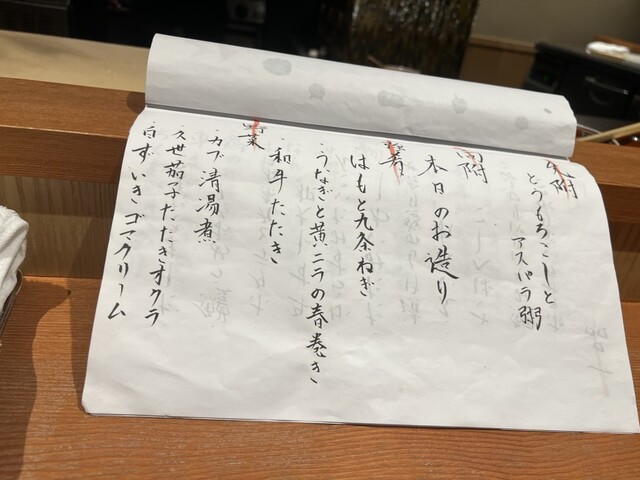 先附
とうもろこしと
アスパラ粥
向附
本日のお造り
肴
はもと九条ねぎ
・うなぎと黄ニラの春巻き
・和牛たたき
菜
・カブ清湯煮
・久世茄子たたきオクラ
・白ずいきゴマクリーム